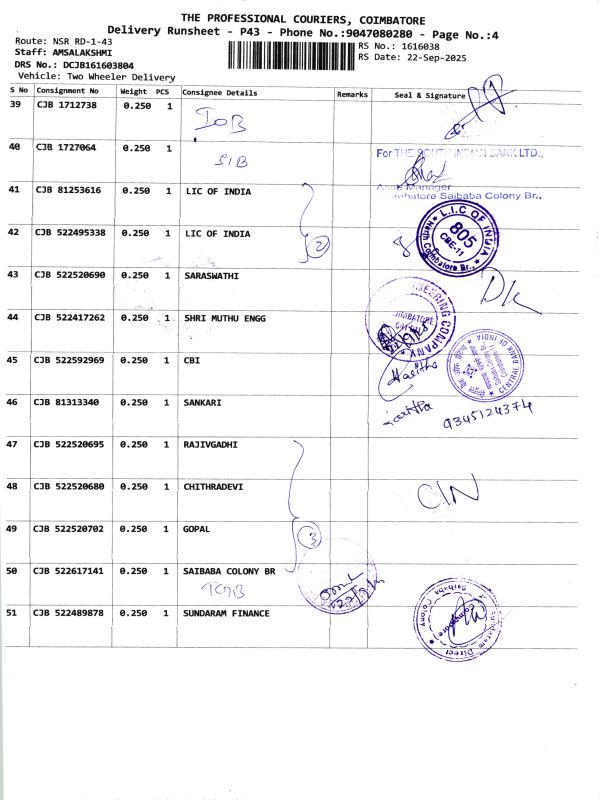 THE PROFESSIONAL COURIERS, COIMBATORE
Delivery Runsheet - P43 - Phone No.:9047080280 - Page No.:4
Route: NSR RD-1-43
Staff: AMSALAKSHMI
DRS No.: DCJB161603804
Vehicle: Two Wheeler Delivery
RS No.: 1616038
RS Date: 22-Sep-2025
S No Consignment No Weight PCS Consignee Details Remarks Seal & Signature
39 CJB 1712738 0.250 1 IOB
40 CJB 1727064 0.250 1 SIB
For THE SOUTH INDIAN BANK LTD.,
Manager
Saibaba Colony Br.,
41 CJB 81253616 0.250 1 LIC OF INDIA
42 CJB 522495338 0.250 1 LIC OF INDIA
2
8
L.I.C OF INDIA
805
CBE-11
Coimbatore Br.,
43 CJB 522520690 0.250 1 SARASWATHI
44 CJB 522417262 0.250 1 SHRI MUTHU ENGG
COMPANY
45 CJB 522592969 0.250 1 CBI
Haritha
CENTRAL BANK OF INDIA
46 CJB 81313340 0.250 1 SANKARI
9345124374
47 CJB 522520695 0.250 1 RAJIVGADHI
48 CJB 522520680 0.250 1 CHITHRADEVI
49 CJB 522520702 0.250 1 GOPAL
3
50 CJB 522617141 0.250 1 SAIBABA COLONY BR
51 CJB 522489878 0.250 1 SUNDARAM FINANCE
Saibaba Colony
Direct